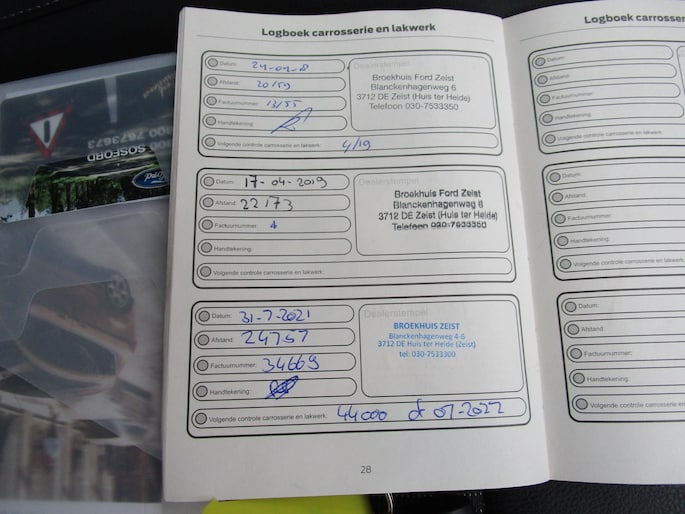 Logboek carrosserie en lakwerk
Datum: 24-04-8
Afstand: 20159
Factuurnummer: 13/55
Handtekening:
Volgende controle carrosserie en lakwerk: 4/19
Dealerstempel
Broekhuis Ford Zeist
Blanckenhagenweg 6
3712 DE Zeist (Huis ter Heide)
Telefoon 030-7533350
Datum: 17-04-2019
Afstand: 22173
Factuurnummer:
Handtekening:
Volgende controle carrosserie en lakwerk:
Dealerstempel
Broekhuis Ford Zeist
Blanckenhagenweg 6
3712 DE Zeist (Huis ter Heide)
Telefoon 030-7533350
Datum: 31-7-2021
Afstand: 24757
Factuurnummer: 34669
Handtekening:
Volgende controle carrosserie en lakwerk: 44000 of 07-2022
Dealerstempel
BROEKHUIS ZEIST
Blanckenhagenweg 4-6
3712 DE Huis ter Heide (Zeist)
tel: 030-7533300
28
Logboek carrosser
Datum:
Afstand:
Factuurnummer:
Handtekening:
Volgende controle carrosserie en
Datum:
Afstand:
Factuurnummer:
Handtekening:
Volgende controle carrosserie en
Datum:
Afstand:
Factuurnummer:
Handtekening:
Volgende controle carrosserie en
SOSFORD
7673673
Ford